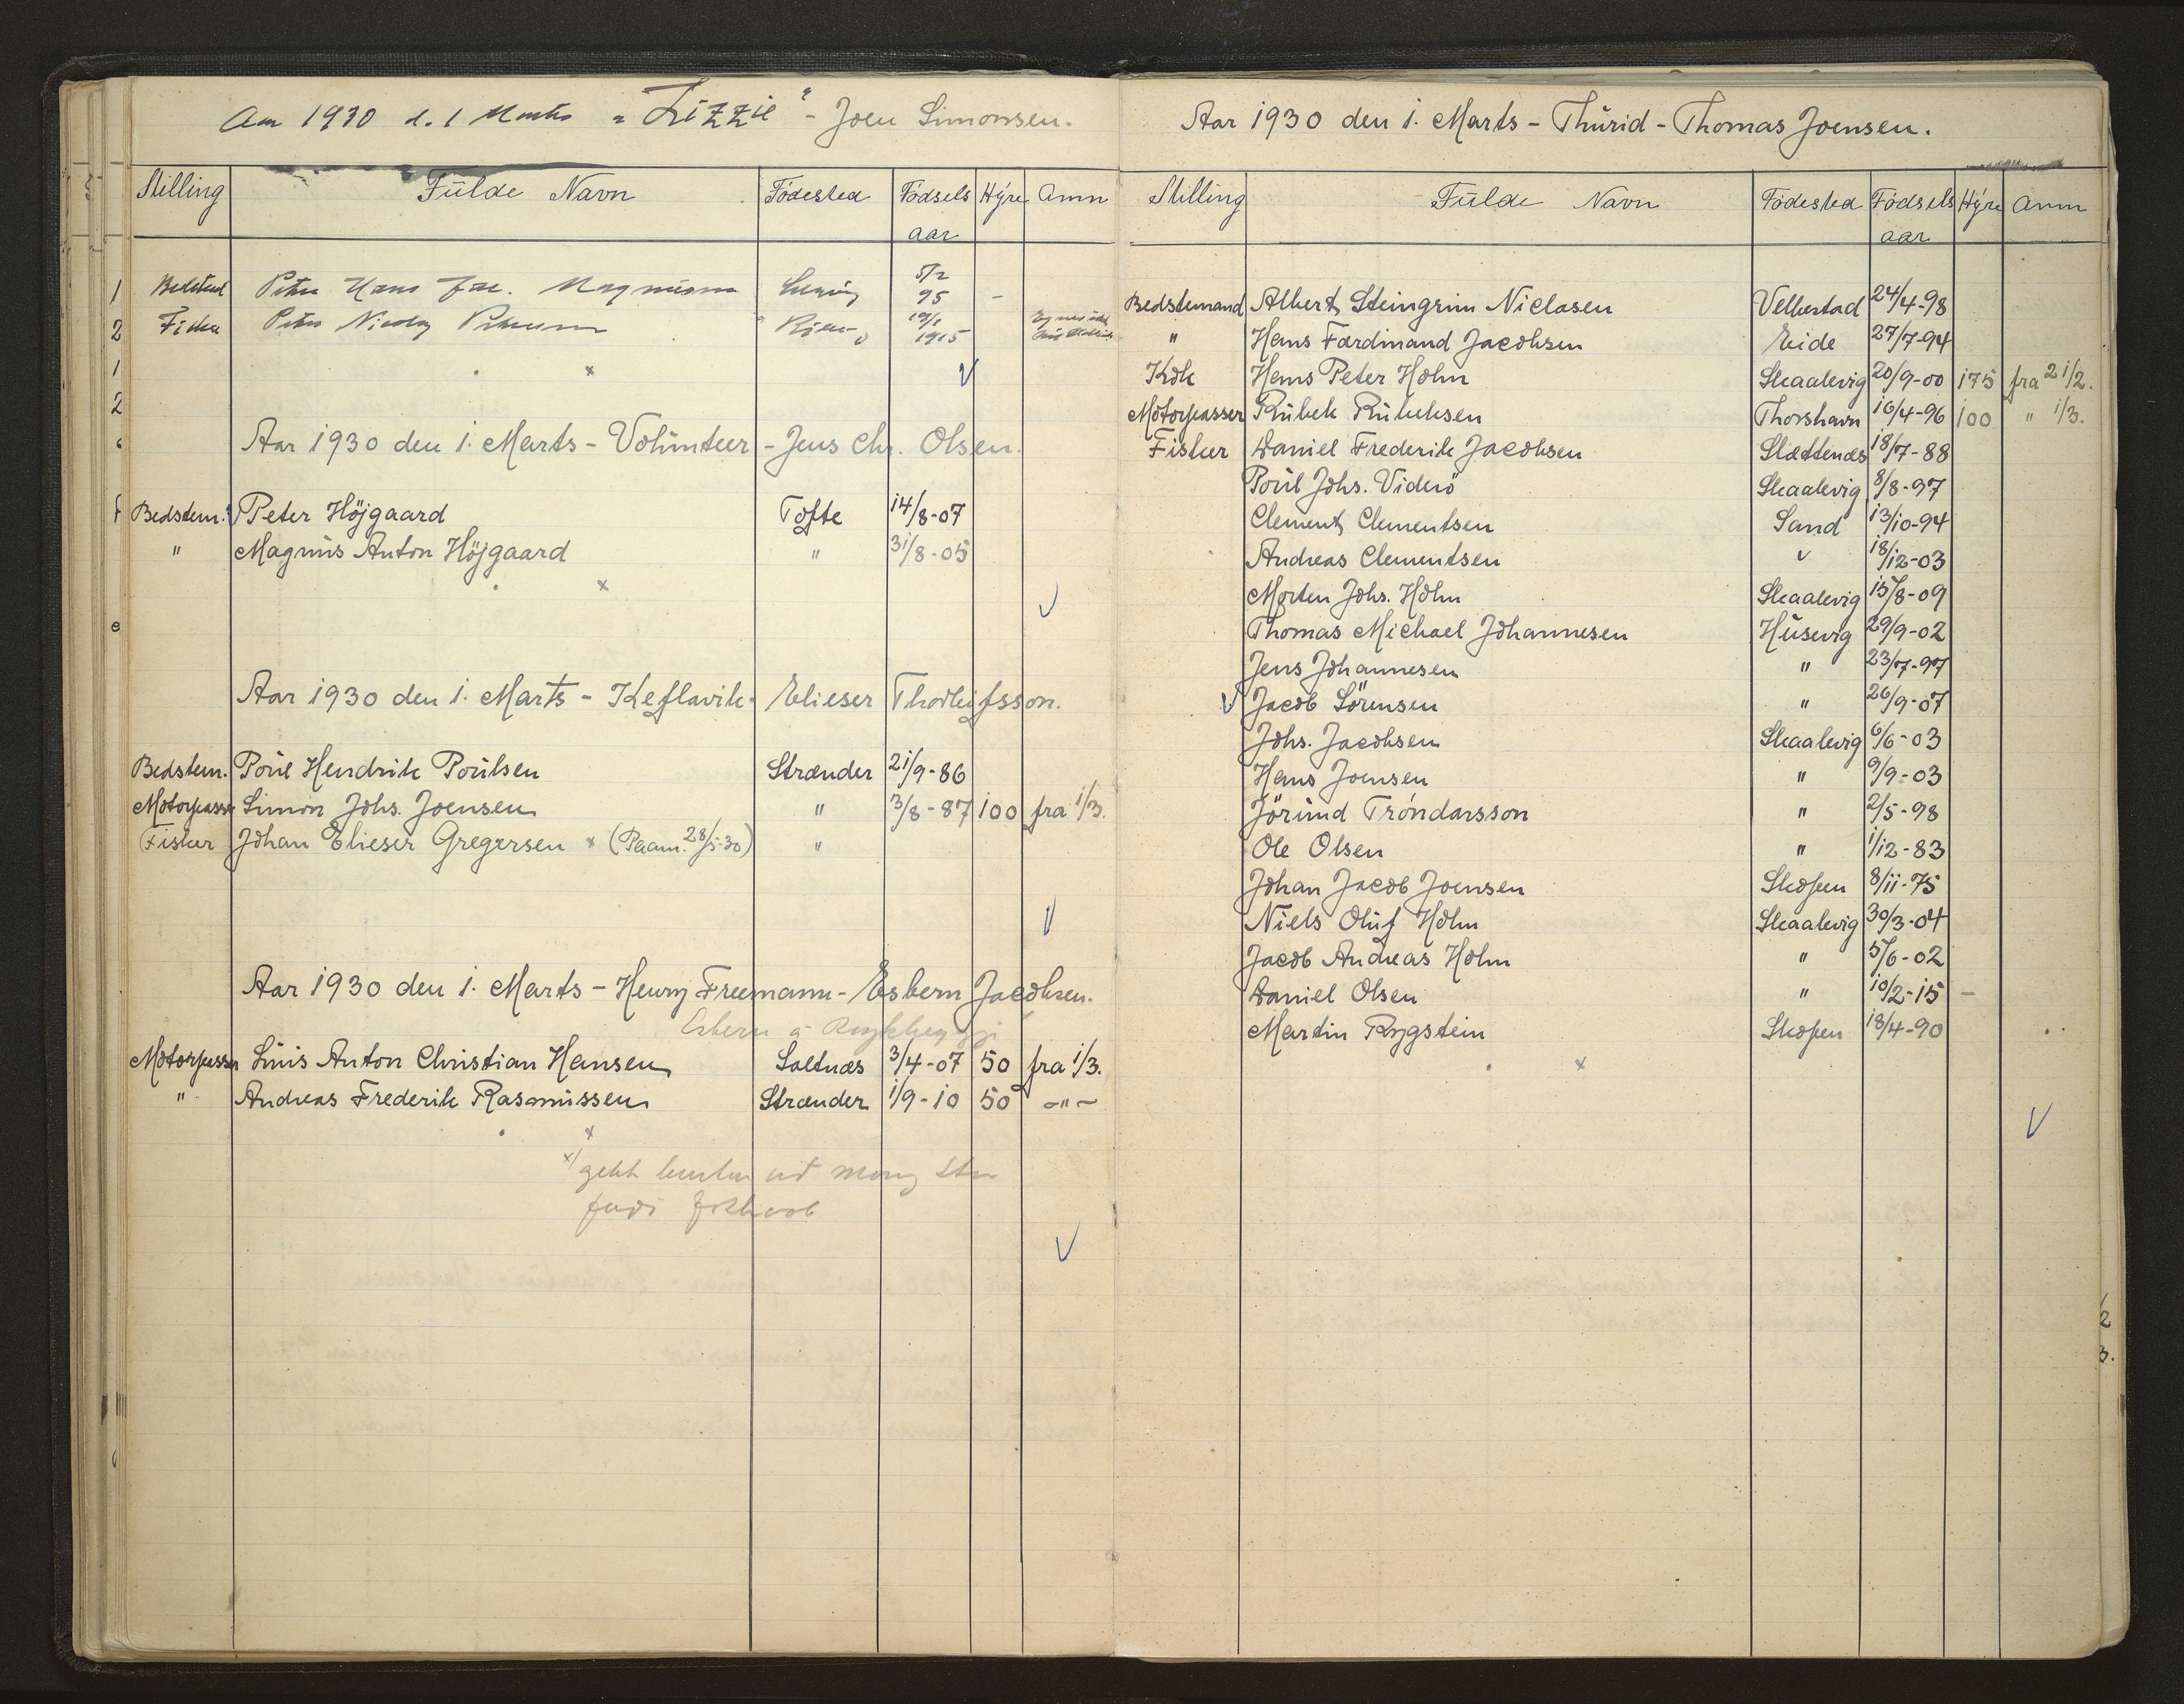 Aar 1930 d. 1 Marts "Lizzie" - Joen Simonsen.
Stilling Fülde Navn Födested Födsels aar Hýre Anm
1 Bedstem Peter Hans Jac. Magnussen 5/2 95 -
2 Fisker Peter 19/1 1915
1
2
Aar 1930 den 1. Marts - Volünteer - Jens Chr. Olsen.
Bedstem. Peter Höjgaard Tofte 14/8-07
" Magnüs Anton Höjgaard " 31/8-05
Aar 1930 den 1. Marts - Keflavik - Elieser Thorleifsson.
Bedstem. Poül Hendrik Poülsen Strænder 21/9-86
Motorpasser Simon Johs. Joensen " 3/8-87 100 fra 1/3.
Fisker Johan Elieser Gregersen x (Paam. 28/5-30) "
Aar 1930 den 1. Marts - Henry Freemann - Esbern Jacobsen.
Esbern á
Motorpasser Lüis Anton Christian Hansen Saltnæs 3/4-07 50 fra 1/3.
" Andreas Frederik Rasmüssen Strænder 1/9-10 50 -"-
x
x)
Aar 1930 den 1. Marts - Thürid - Thomas Joensen.
Stilling Fülde Navn Födested Födsels aar Hýre Anm
Bedstemand Albert Steingrim Niclasen Velbestad 24/4-98
" Hans Færdinand Jacobsen Eide 27/7-94
Kok Hans Peter Holm Skaalevig 20/9-00 175 fra 21/2.
Motorpasser Rübek Rübeksen Thorshavn 16/4-96 100 " 1/3.
Fisker Daniel Frederik Jacobsen Slættenæs 18/7-88
Poül Johs. Viderö Skaalevig 8/8-97
Clement Clementsen Sand 13/10-94
Andreas Clementsen " 18/12-03
Morten Johs. Holm Skaalevig 15/8-09
Thomas Michael Johannesen Hüsevig 29/9-02
Jens Johannesen " 23/7-97
Jacob Sörensen " 26/9-07
Johs. Jacobsen Skaalevig 6/6-03
Hans Joensen " 9/9-03
Jöründ Tróndarsson " 2/5-98
Ole Olsen " 1/12-83
Johan Jacob Joensen Skopen 8/11-75
Niels Olüf Holm Skaalevig 30/3-04
Jacob Andreas Holm " 5/6-02
Daniel Olsen " 10/2-15 -
Martin Rygstein Skopen 18/4-90
x